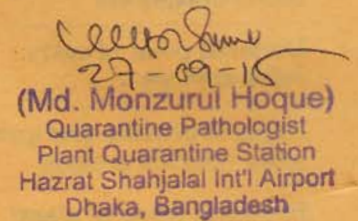 27-09-15
(Md. Monzurul Hoque)
Quarantine Pathologist
Plant Quarantine Station
Hazrat Shahjalal Int'l Airport
Dhaka, Bangladesh